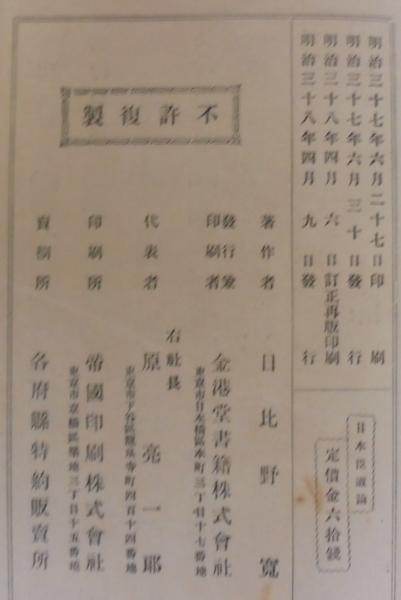 明治三十七年六月二十七日印刷
明治三十七年六月三十日發行
明治三十八年四月六日訂正再版印刷
明治三十八年四月九日發行
日本臣道論
定價金六拾錢
不許複製
著作者 日比野寬
發行兼印刷者 金港堂書籍株式會社
東京市日本橋區本町三丁目十七番地
右社長
代表者 原亮一郎
東京市下谷區龍泉寺町四百十四番地
印刷所 帝國印刷株式會社
東京市京橋區築地三丁目十五番地
賣捌所 各府縣特約販賣所